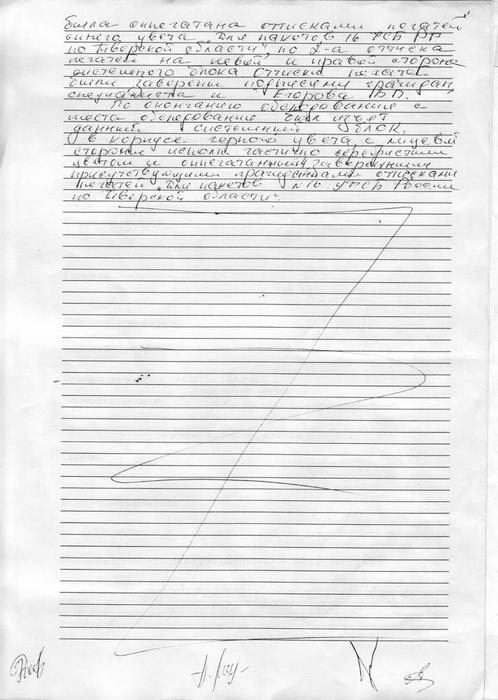 была опечатана оттисками печатей
синего цвета "Для пакетов №16 УФСБ РФ
по Тверской области" по 2-а оттиска
печатей на левой и правой стороне
системного блока. Оттиски печатей
были заверены подписями граждан,
специалиста и Егорова
По окончанию обследования с
места обследования был изъят
данный системный блок,
в корпусе черного цвета, с лицевой
стороны частично серебристым
цветом и опечатанный заверенными
присутствующими гражданами оттисками
печатей "Для пакетов №16 УФСБ России
по Тверской области".